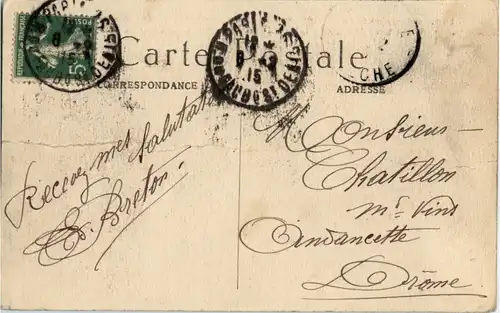 Carte Postale
CORRESPONDANCE
ADRESSE
Recevez mes
salutat
E. Breton
Monsieur
Chatillon
md Vins
Andancette
Drôme
PARIS
15
CHE
5c